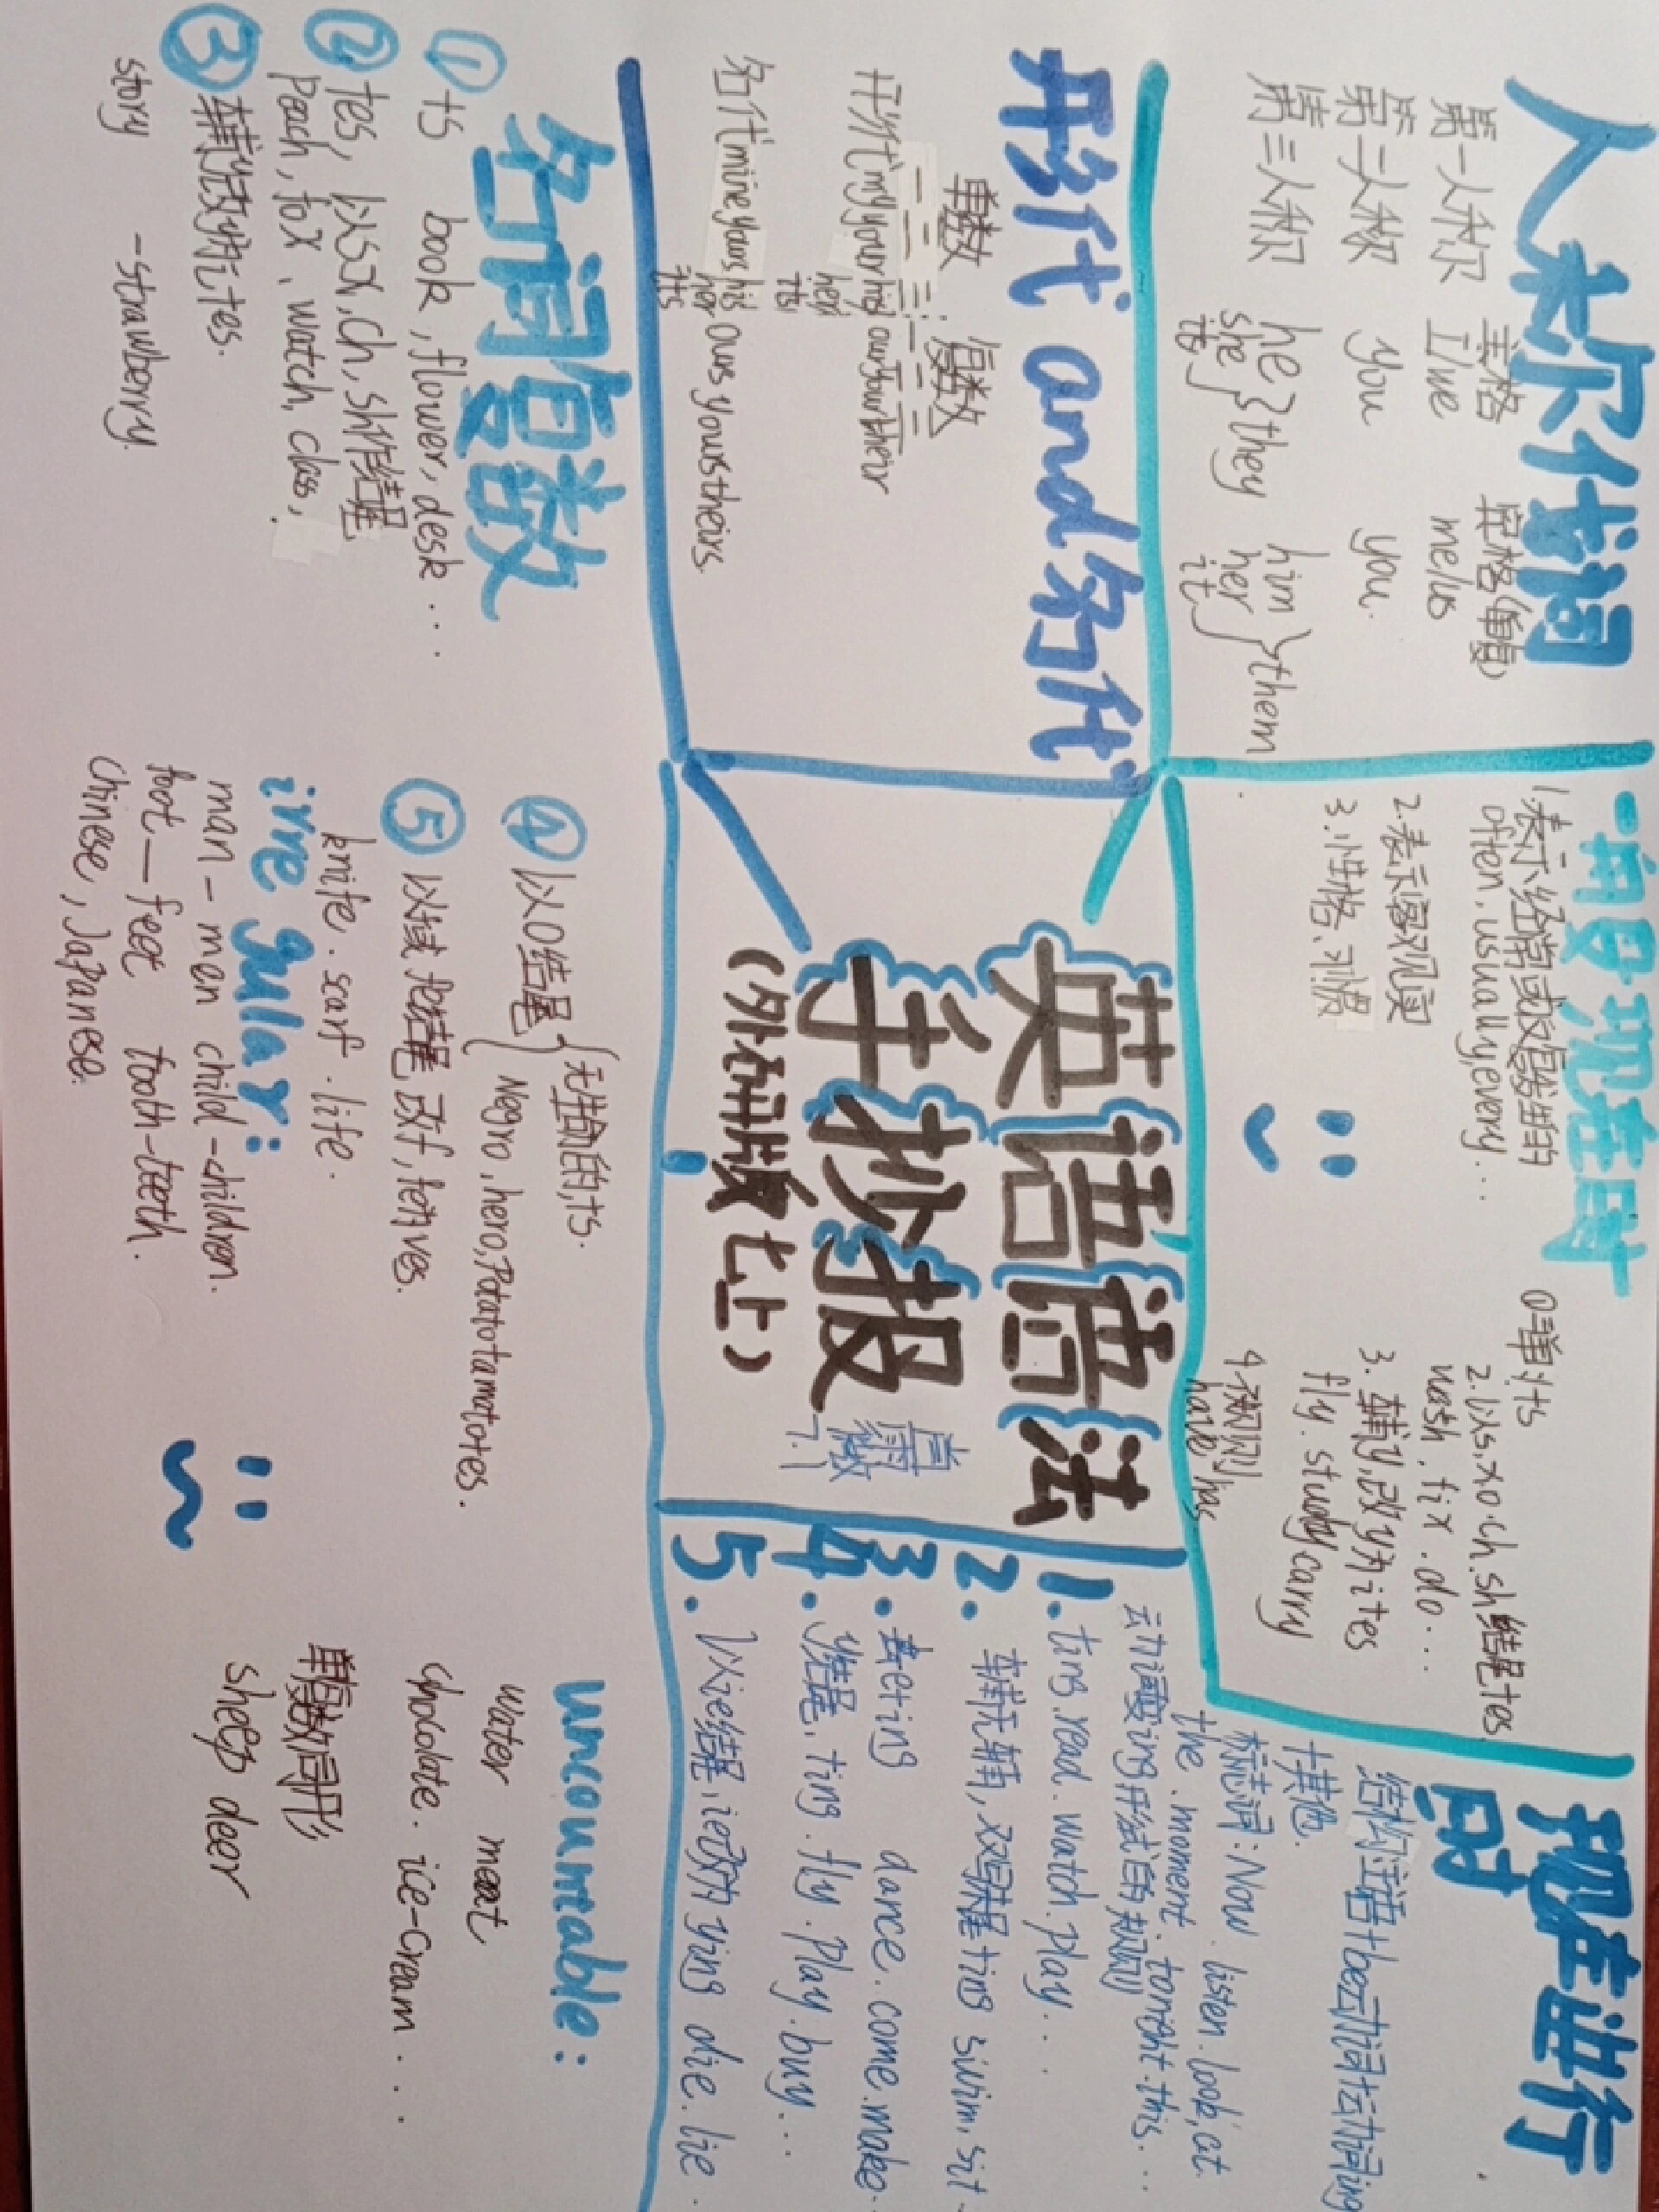 人称代词
主格 宾格(单复)
第一人称 I/we me/us
第二人称 you you.
第三人称 he she its } they him her it } them
一般现在时
1.表示经常或反复发生的
often, usually, every...
2.表示客观真
3.小性格、习惯
①单
2.以s.x.o.ch.sh结尾+es
wash. fix. do...
3.辅y,改y为i+es
fly. study carry
have, has
现在进行时
结构:主语+be动词+动词ing
+其他.
标志词:Now. listen. look, at
the. moment. tonight. this...
1. +ing. read. watch. play...
2. 辅元辅,双写尾+ing swim. sit.
3. 去e+ing dance. come. make.
4. y结尾, +ing. fly. play. buy...
5. 以ie结尾,ie改为y+ing die. lie.
形代 and 名代
单数 复数
一 二 三 一 二 三
形代 my your his her its our your their
名代 mine yours his her its ours yours theirs.
英语语法
手抄报
(外研版七上)
7.1
名词复数
① +s book, flower, desk...
② +es, 以s,x,ch,sh作结尾
peach, fox, watch, class,
③ 辅y,改y为i+es.
story -strawberry.
④ 以O结尾 { 无生命的,+s.
Negro, hero, Potato tamotoes.
⑤ 以f或fe结尾,改f,fe为ves.
knife. scarf. life.
irre gular:
man - men child -children.
foot — feet tooth-teeth.
Chinese, Japanese.
uncountable:
water meat
chocolate. ice-cream...
单复数同形
sheep deer